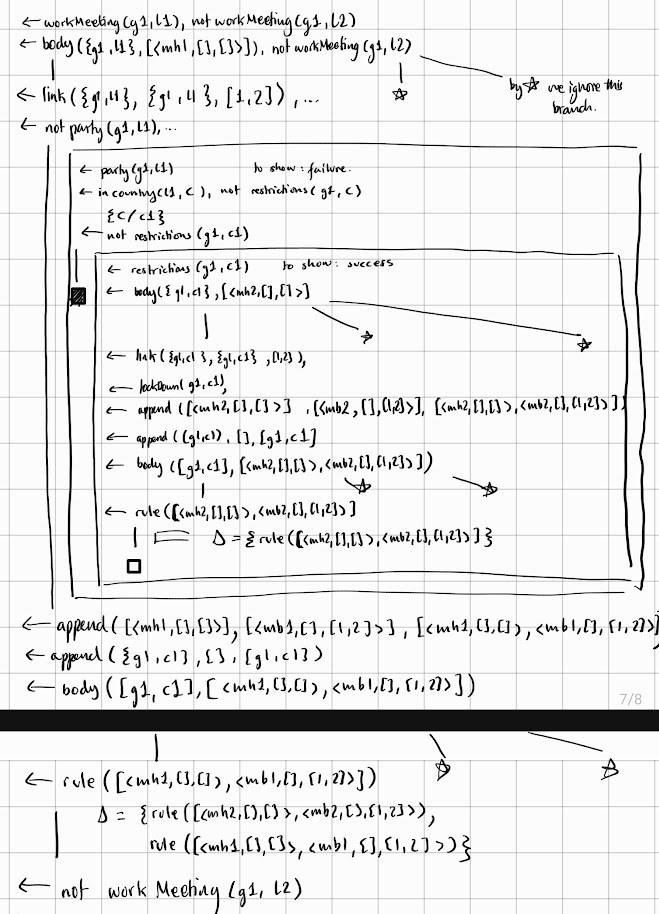 ← workMeeting(g1,l1), not workMeeting(g1,l2)
← body({g1,l1},[<mh1,[],[]>]), not workMeeting(g1,l2)
by ☆ we ignore this
branch.
← link({g1,l1}, {g1,l1}, [1,2]), ...
← not party(g1,l1), ...
← party(g1,l1) to show: failure.
← in country(l1, C), not restrictions(g1, C)
{C/c1}
← not restrictions(g1,c1)
← restrictions(g1,c1) to show: success
← body({g1,c1},[<mh2,[],[]>]
← link({g1,c1}, {g1,c1}, [1,2]),
← lockDown(g1,c1),
← append([<mh2,[],[]>], [<mb2,[],[1,2]>], [<mh2,[],[]>,<mb2,[],[1,2]>])
← append({g1,c1}, [], [g1,c1]
← body([g1,c1],[<mh2,[],[]>,<mb2,[],[1,2]>])
← rule([<mh2,[],[]>,<mb2,[],[1,2]>]
Δ = {rule([<mh2,[],[]>,<mb2,[],[1,2]>]}
← append([<mh1,[],[]>], [<mb1,[],[1,2]>], [<mh1,[],[]>,<mb1,[],[1,2]>]
← append({g1,c1}, [], [g1,c1])
← body([g1,c1],[<mh1,[],[]>,<mb1,[],[1,2]>])
7/8
← rule([<mh1,[],[]>,<mb1,[],[1,2]>])
Δ = {rule([<mh2,[],[]>,<mb2,[],[1,2]>),
rule([<mh1,[],[]>,<mb1,[],[1,2]>)}
← not work Meeting(g1, l2)